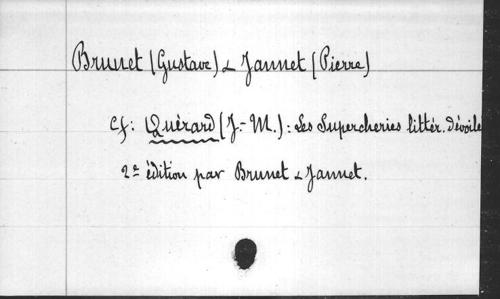 Brunet (Gustave) & Jannet (Pierre)
Cf: Quérard (J.-M.): Les Supercheries littér. dévoilé
2e édition par Brunet & Jannet.